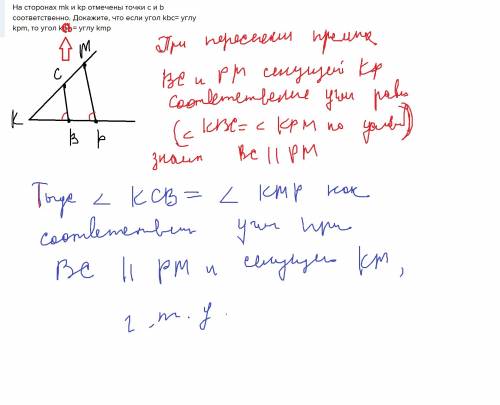 На сторонах mk и kp отмечены точки с и b
соответственно. Докажите, что если угол kbc= углу
kpm, то угол k = углу kmp
M
C
K
B
P
При пересечении прямых
BC и PM секущей KP
соответственные углы равны
(∠KBC = ∠KPM по условию)
значит BC || PM
Тогда ∠ KCB = ∠ KMP как
соответствен углы при
BC || PM и секущей KM,
ч.т.у.